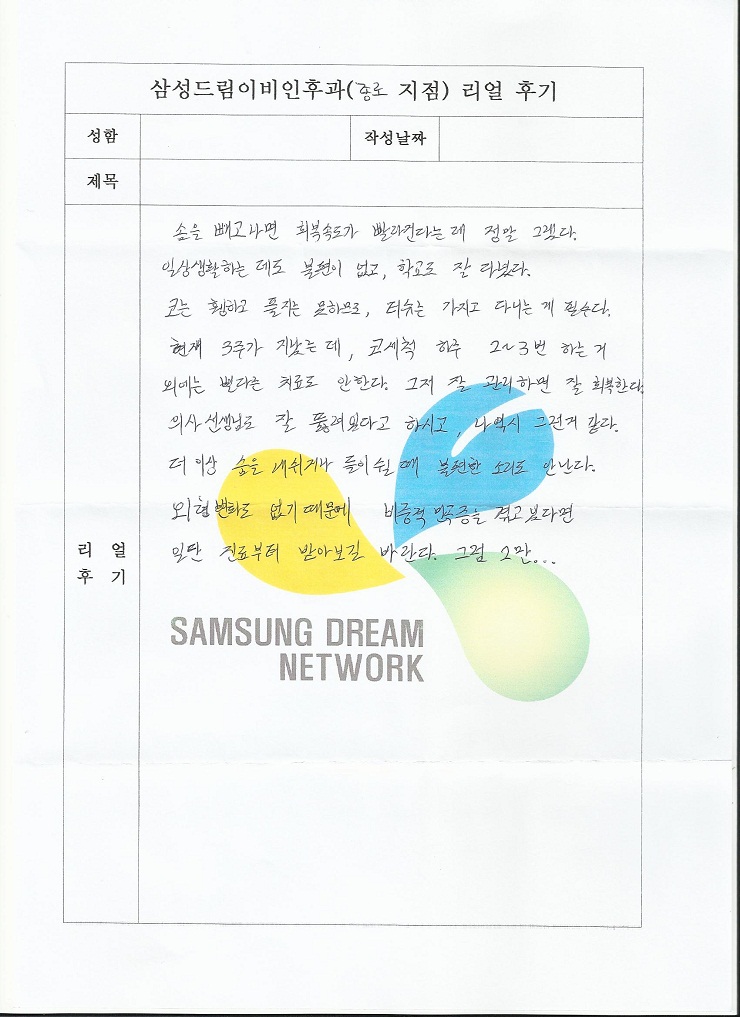 삼성드림이비인후과(종로 지점) 리얼 후기
성함 작성날짜
제목
솜을 빼고나면 회복속도가 빨라진다는데 정말 그랬다.
일상생활하는 데도 불편이 없고, 학교도 잘 다녔다.
코는 휑하고 풀지는 못하므로, 티슈는 가지고 다니는 게 필수다.
현재 3주가 지났는데, 코세척 하루 2~3번 하는 거
외에는 별다른 치료도 안한다. 그저 잘 관리하면 잘 회복한다.
의사선생님도 잘 뚫려있다고 하시고, 나역시 그런거 같다.
더 이상 숨을 내쉬거나 들이쉴 때 불편한 소리도 안난다.
외형변화도 없기 때문에 비중격 만곡증을 겪고 있다면
일단 진료부터 받아보길 바란다. 그럼 2만...
리얼
후기
SAMSUNG DREAM
NETWORK